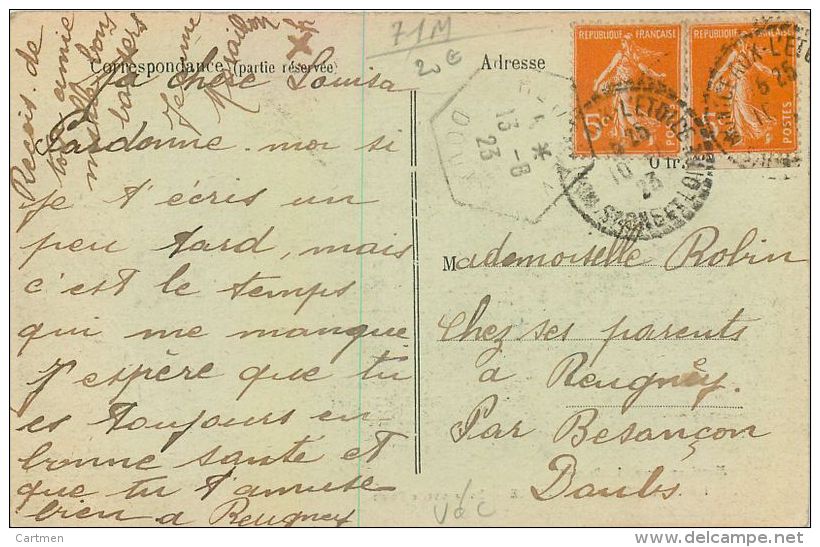 Reçois de
ton amie
mille bons
baisers
Jeanne
71M
20€
Correspondance (partie réservée
Adresse
Ma chère Louisa
Pardonne moi si
je t'écris un
peu tard, mais
c'est le temps
qui me manque.
J'espère que tu
es toujours en
bonne santé et
que tu t'amuse
bien a Reugney
REPUBLIQUE FRANÇAISE
5c
POSTES
REPUBLIQUE FRANÇAISE
POSTES
L'ETOILE
SAONE ET LOIRE
10
23
13-8
23
DOUBS
0 fr.
Mademoiselle Robin
Chez ses parents
a Reugney.
Par Besançon
Doubs
V&C
Cartmen
www.delcampe.net